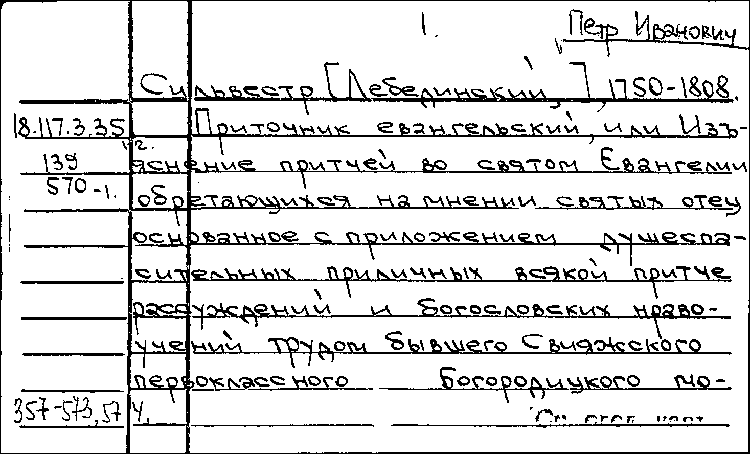 1.
Петр Иванович
Сильвестр [Лебединский,], 1750-1808.
18.117.3.35 Приточник евангельский, или Изъ-
139 яснение притчей во святом Евангелии
570-1. обретающихся на мнении святых отец
основанное с приложением душеспа-
сительных приличных всякой притче
рассуждений и богословских нраво-
учений трудом бывшего Свияжского
первоклассного Богородицкого мо-
357-573,574.